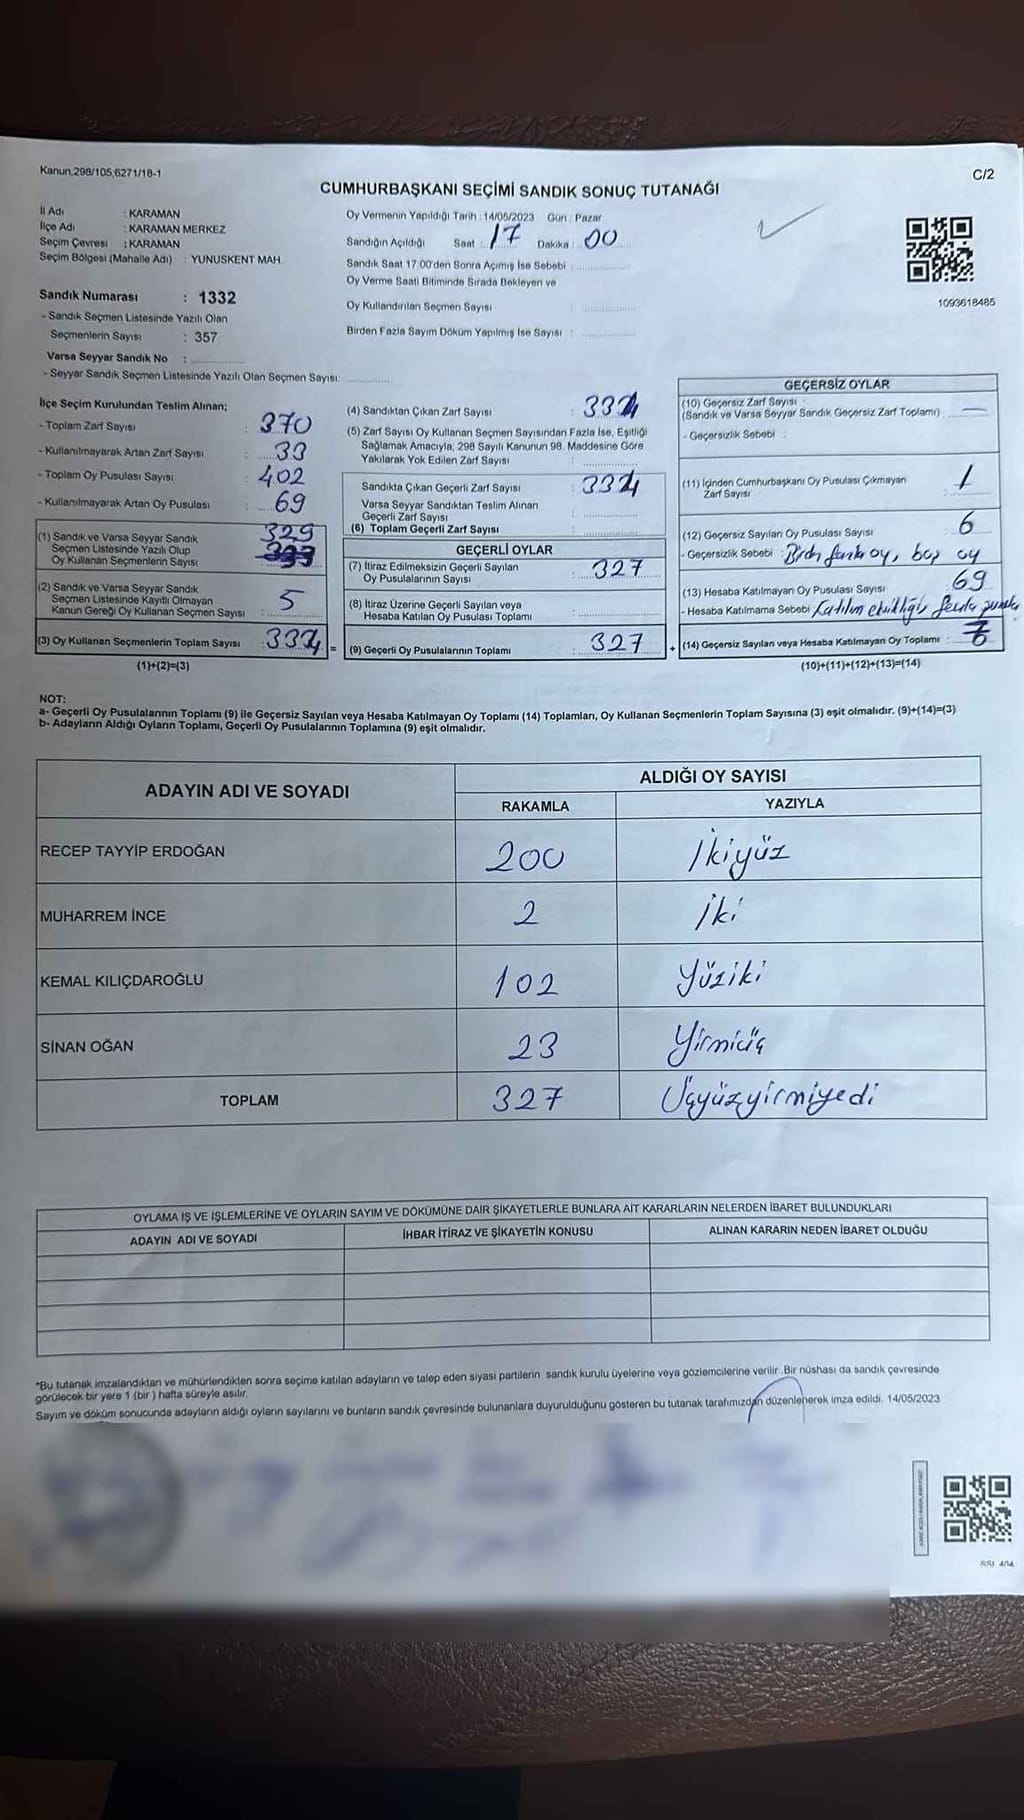 Kanun,298/105,6271/18-1
C/2
CUMHURBAŞKANI SEÇİMİ SANDIK SONUÇ TUTANAĞI
İl Adı : KARAMAN
İlçe Adı : KARAMAN MERKEZ
Seçim Çevresi : KARAMAN
Seçim Bölgesi (Mahalle Adı) : YUNUSKENT MAH.
Oy Vermenin Yapıldığı Tarih : 14/05/2023 Gün : Pazar
Sandığın Açıldığı Saat : 17 Dakika : 00
Sandık Saat 17:00'den Sonra Açımış İse Sebebi :
Oy Verme Saati Bitiminde Sırada Bekleyen ve
Oy Kullandırılan Seçmen Sayısı :
Birden Fazla Sayım Döküm Yapılmış İse Sayısı :
1093618485
Sandık Numarası : 1332
- Sandık Seçmen Listesinde Yazılı Olan
Seçmenlerin Sayısı : 357
Varsa Seyyar Sandık No :
- Seyyar Sandık Seçmen Listesinde Yazılı Olan Seçmen Sayısı:
İlçe Seçim Kurulundan Teslim Alınan;
- Toplam Zarf Sayısı : 370
- Kullanılmayarak Artan Zarf Sayısı : 33
- Toplam Oy Pusulası Sayısı : 402
- Kullanılmayarak Artan Oy Pusulası : 69
(1) Sandık ve Varsa Seyyar Sandık
Seçmen Listesinde Yazılı Olup
Oy Kullanan Seçmenlerin Sayısı : 329
(2) Sandık ve Varsa Seyyar Sandık
Seçmen Listesinde Kayıtlı Olmayan
Kanun Gereği Oy Kullanan Seçmen Sayısı : 5
(3) Oy Kullanan Seçmenlerin Toplam Sayısı : 334 =
(1)+(2)=(3)
(4) Sandıktan Çıkan Zarf Sayısı : 334
(5) Zarf Sayısı Oy Kullanan Seçmen Sayısından Fazla İse, Eşitliği
Sağlamak Amacıyla, 298 Sayılı Kanunun 98. Maddesine Göre
Yakılarak Yok Edilen Zarf Sayısı :
Sandıkta Çıkan Geçerli Zarf Sayısı : 334
Varsa Seyyar Sandıktan Teslim Alınan
Geçerli Zarf Sayısı :
(6) Toplam Geçerli Zarf Sayısı :
GEÇERLİ OYLAR
(7) İtiraz Edilmeksizin Geçerli Sayılan
Oy Pusulalarının Sayısı : 327
(8) İtiraz Üzerine Geçerli Sayılan veya
Hesaba Katılan Oy Pusulası Toplamı :
(9) Geçerli Oy Pusulalarının Toplamı : 327 +
GEÇERSİZ OYLAR
(10) Geçersiz Zarf Sayısı
(Sandık ve Varsa Seyyar Sandık Geçersiz Zarf Toplamı) : —
- Geçersizlik Sebebi :
(11) İçinden Cumhurbaşkanı Oy Pusulası Çıkmayan
Zarf Sayısı : 1
(12) Geçersiz Sayılan Oy Pusulası Sayısı : 6
- Geçersizlik Sebebi : Birden fazla oy, boş oy
(13) Hesaba Katılmayan Oy Pusulası Sayısı : 69
- Hesaba Katılmama Sebebi : Katılım eksikliği
(14) Geçersiz Sayılan veya Hesaba Katılmayan Oy Toplamı :
(10)+(11)+(12)+(13)=(14)
NOT:
a- Geçerli Oy Pusulalarının Toplamı (9) ile Geçersiz Sayılan veya Hesaba Katılmayan Oy Toplamı (14) Toplamları, Oy Kullanan Seçmenlerin Toplam Sayısına (3) eşit olmalıdır. (9)+(14)=(3)
b- Adayların Aldığı Oyların Toplamı, Geçerli Oy Pusulalarının Toplamına (9) eşit olmalıdır.
ADAYIN ADI VE SOYADI
ALDIĞI OY SAYISI
RAKAMLA YAZIYLA
RECEP TAYYİP ERDOĞAN 200 İkiyüz
MUHARREM İNCE 2 İki
KEMAL KILIÇDAROĞLU 102 Yüziki
SİNAN OĞAN 23 Yirmiüç
TOPLAM 327 Üçyüzyirmiyedi
OYLAMA İŞ VE İŞLEMLERİNE VE OYLARIN SAYIM VE DÖKÜMÜNE DAİR ŞİKAYETLERLE BUNLARA AİT KARARLARIN NELERDEN İBARET BULUNDUKLARI
ADAYIN ADI VE SOYADI İHBAR İTİRAZ VE ŞİKAYETİN KONUSU ALINAN KARARIN NEDEN İBARET OLDUĞU
*Bu tutanak imzalandıktan ve mühürlendikten sonra seçime katılan adayların ve talep eden siyasi partilerin sandık kurulu üyelerine veya gözlemcilerine verilir .Bir nüshası da sandık çevresinde
görülecek bir yere 1 (bir ) hafta süreyle asılır.
Sayım ve döküm sonucunda adayların aldığı oyların sayılarını ve bunların sandık çevresinde bulunanlara duyurulduğunu gösteren bu tutanak tarafımızdan düzenlenerek imza edildi. 14/05/2023